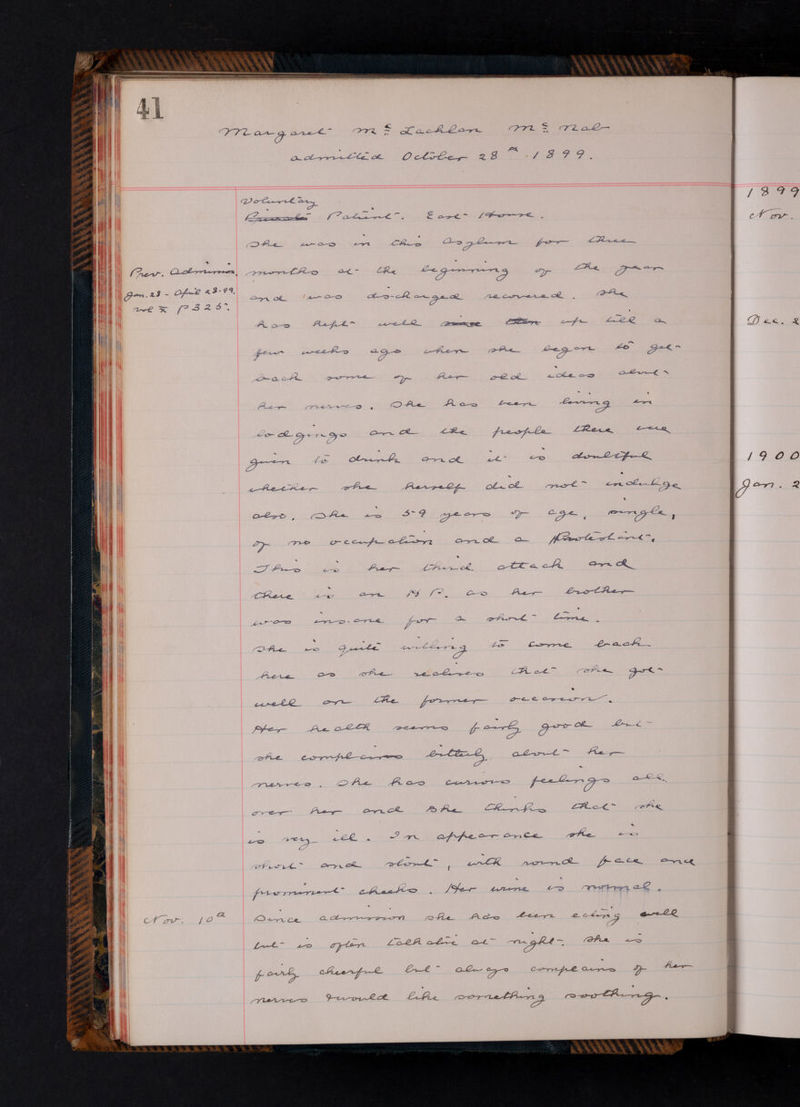 41
Margaret Mc Lachlan Mc Nab
admitted October 28th 1899.
Voluntary
Private Patient. East House.
She was in this Asylum for three
Prev. Admission,
Jan. 28 - April 28.99,
Vol X p 325.
months at the beginning of the year
and was discharged recovered. She
has kept well since then up till a
few weeks ago when she began to get
back some of her old ideas about
her nerves. She has been living in
lodgings and the people there were
given to drink and it is doubtful
whether she herself did not indulge
also. She is 59 years of age, single,
of no occupation and a Protestant.
This is her third attack and
there is an H P. as her brother
was insane for a short time.
She is quite willing to come back
here as she realises that she got
well on the former occasion.
Her health seems fairly good but
she complains bitterly about her
nerves. She has curious feelings all
over her and she thinks that she
is very ill. In appearance she is
short and stout, with round face and
prominent cheeks. Her urine is normal.
Nov. 10th
Since admission she has been eating well
but is often talkative at night. She is
fairly cheerful but always complains of her
nerves & would like something soothing.
1899
Nov.
Dec. 2
1900
Jan. 2